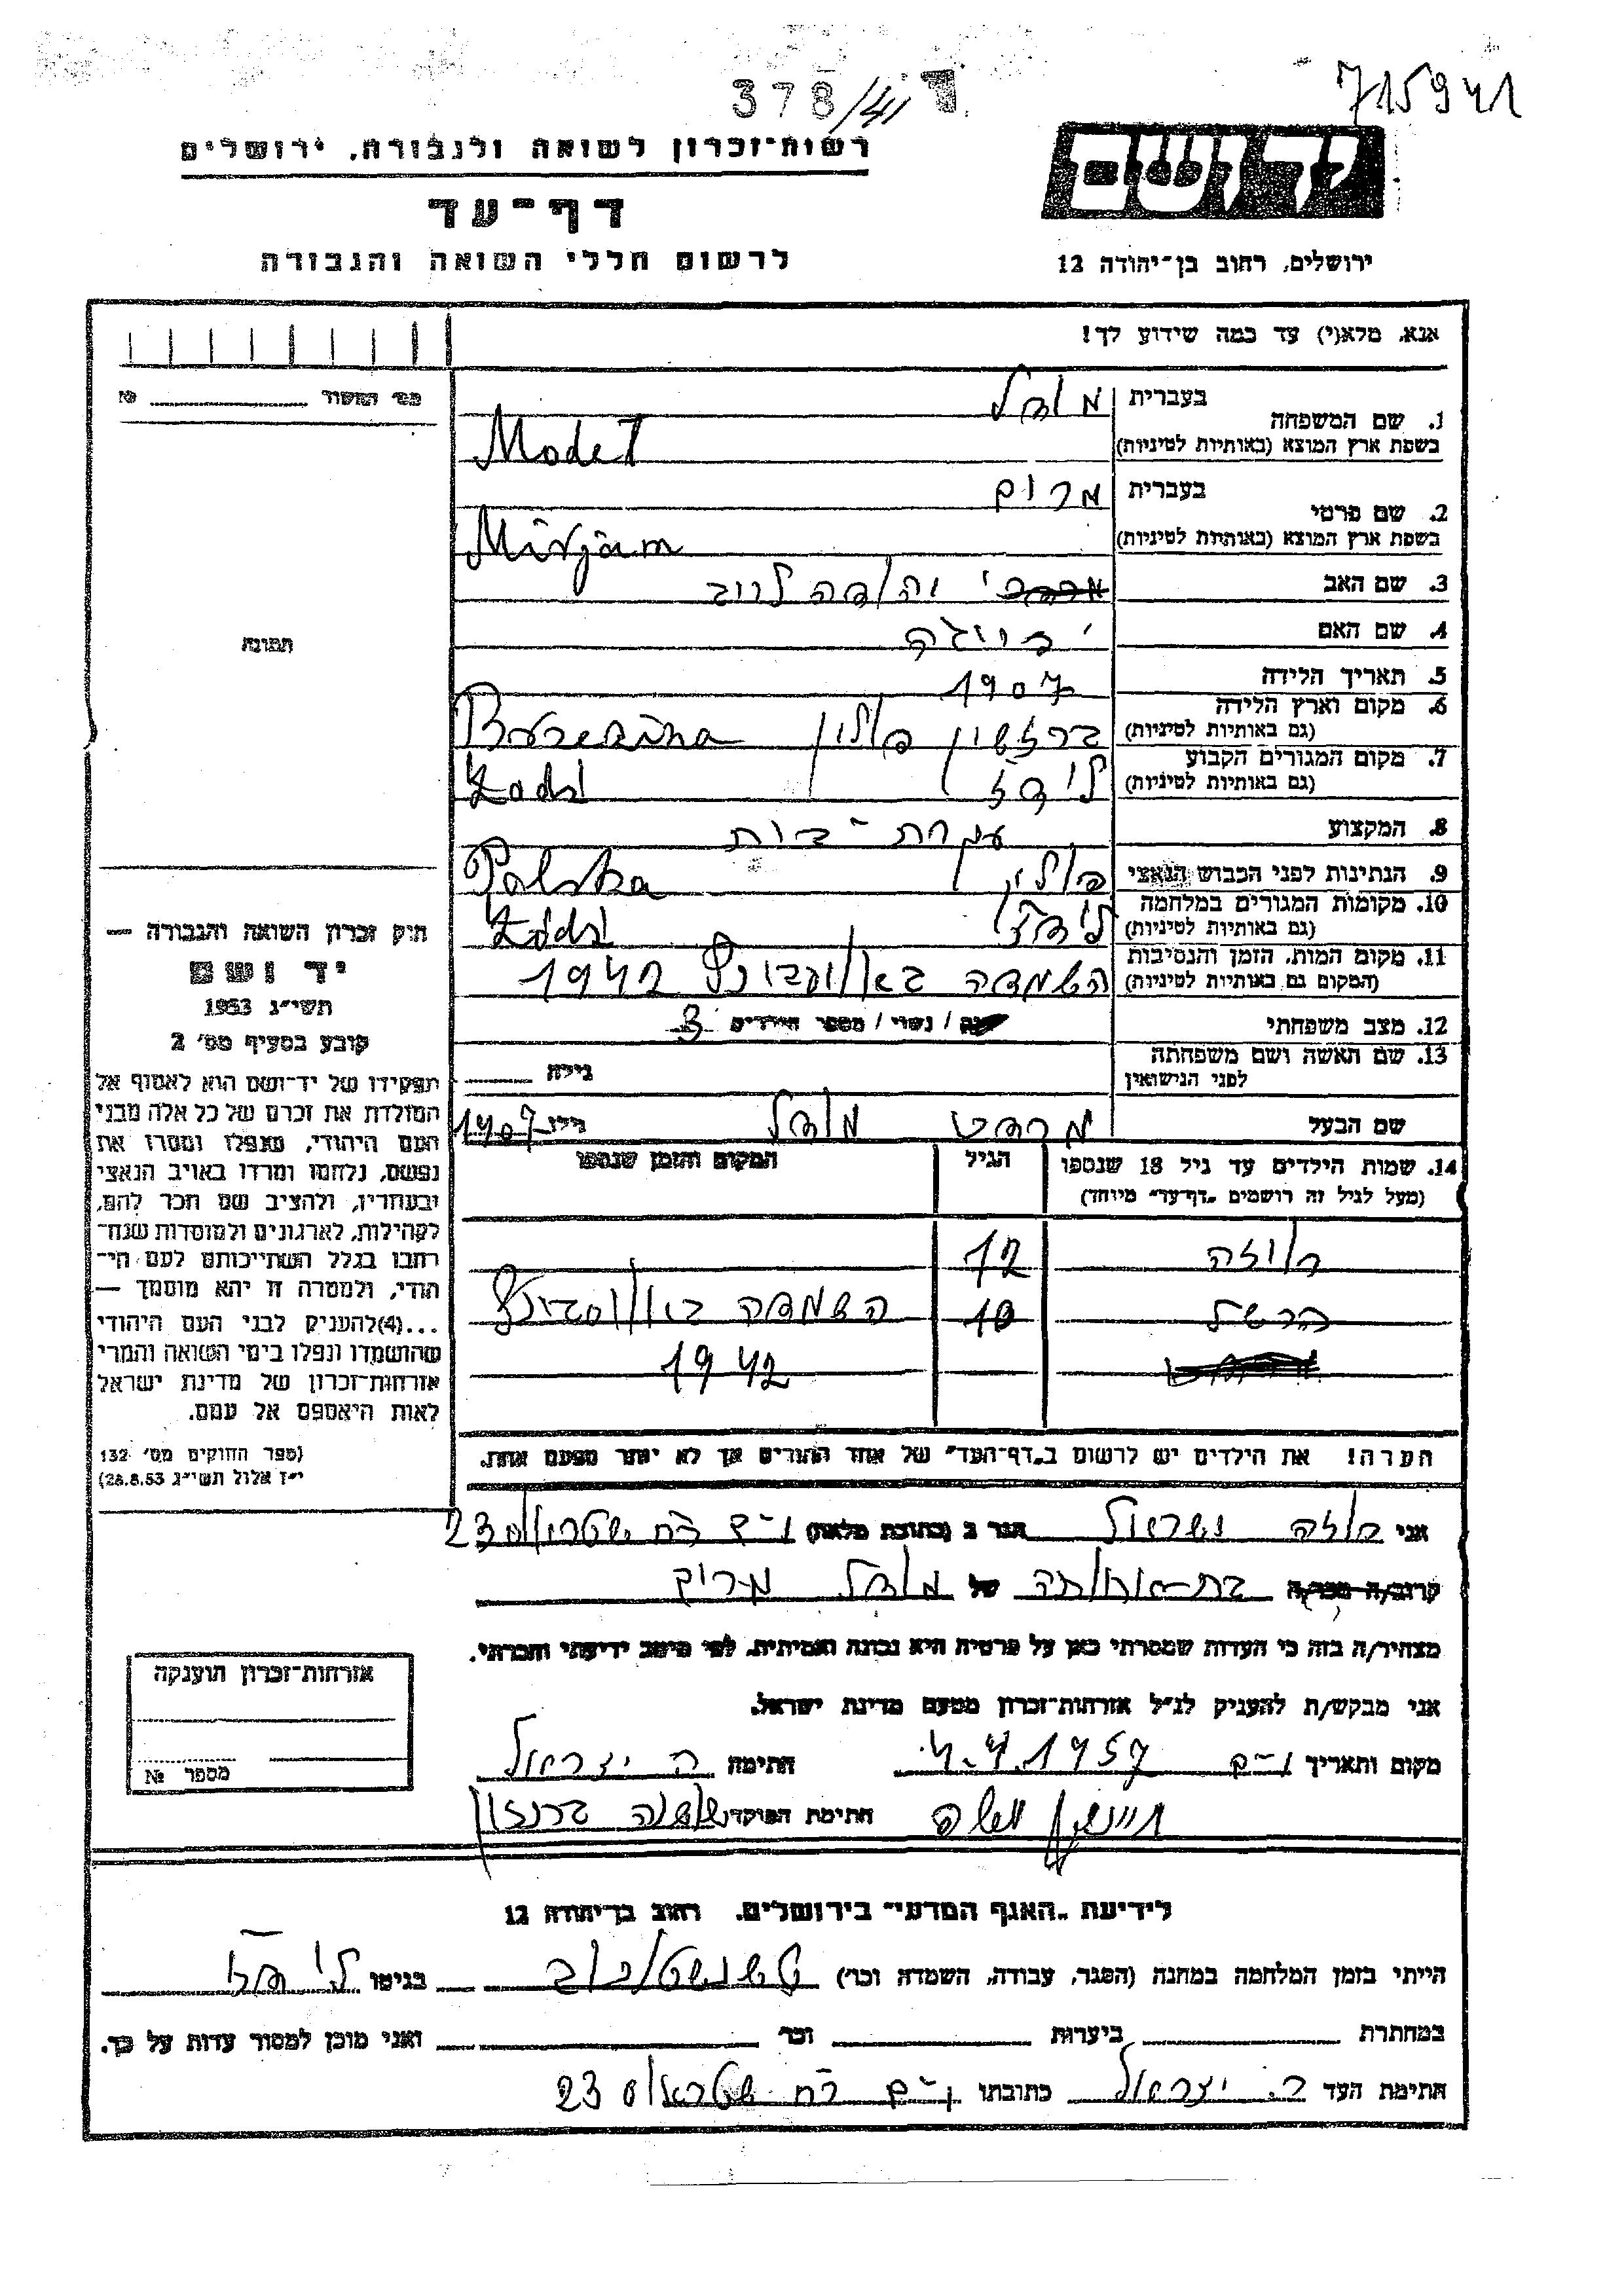 378/41
715941
רשות־זכרון לשואה ולגבורה, ירושלים
דף־עד
לרשום חללי השואה והגבורה
ירושלים, רחוב בן־יהודה 12
אנא, מלא(י) עד כמה שידוע לך!
מס׳ תמונה
תמונה
1. שם המשפחה
בעברית מודל
בשפת ארץ המוצא (באותיות לטיניות) Model
2. שם פרטי
בעברית מרים
בשפת ארץ המוצא (באותיות לטיניות) Mirjam
3. שם האב יהודה לייב
4. שם האם
5. תאריך הלידה 1907
6. מקום וארץ הלידה
(גם באותיות לטיניות) ברזשין פולין
7. מקום המגורים הקבוע
(גם באותיות לטיניות) לודז Łodz
8. המקצוע עקרת־בית
9. הנתינות לפני הכבוש הנאצי פולין Polska
10. מקומות המגורים במלחמה
(גם באותיות לטיניות) לודז Łodz
11. מקום המות, הזמן והנסיבות
(המקום גם באותיות לטיניות) הושמדה באושביץ 1942
12. מצב משפחתי / נשוי / מספר הילדים 3
13. שם האשה ושם משפחתה
לפני הנישואין גילה
שם הבעל מודל גילו 1907
14. שמות הילדים עד גיל 18 שנספו
(מעל לגיל זה רושמים „דף־עד״ מיוחד)
הגיל
המקום והזמן שנספו
רוזה 12
הרשל 10 הושמדה באושביץ
1942
הערה! את הילדים יש לרשום ב„דף־העד״ של אחד ההורים אך לא יותר מפעם אחת.
חוק זכרון השואה והגבורה —
יד ושם
תשי״ג 1953
קובע בסעיף מס׳ 2
תפקידו של יד־ושם הוא לאסוף אל
המולדת את זכרם של כל אלה מבני
העם היהודי, שנפלו ומסרו את
נפשם, נלחמו ומרדו באויב הנאצי
ובעוזריו, ולהציב שם וזכר להם,
לקהילות, לארגונים ולמוסדות שנח־
רבו בגלל השתייכותם לעם הי־
הודי, ולמטרה זו יהא מוסמך —
...(4)להעניק לבני העם היהודי
שהושמדו ונפלו בימי השואה והמרי
אזרחות־זכרון של מדינת ישראל
לאות היאספם אל עמם.
(ספר החוקים מס׳ 132
י״ז אלול תשי״ג 28.8.53)
אני רוזה ישראל הגר ב (כתובת מלאה) י־ם רח׳ שטראוס 23
קרוב/ה מכר/ה בת־אחותה של מודל מרים
מצהיר/ה בזה כי העדות שמסרתי כאן על פרטיה היא נכונה ואמיתית, לפי מיטב ידיעתי והכרתי.
אני מבקש/ת להעניק לנ״ל אזרחות־זכרון מטעם מדינת ישראל.
מקום ותאריך י־ם 4.4.1957 חתימה ר. ישראל
חתימת הפוקד
אזרחות־זכרון הוענקה
מספר №
לידיעת „האגף המדעי״ בירושלים, רחוב בן־יהודה 12
הייתי בזמן המלחמה במחנה (הסגר, עבודה, השמדה וכו׳) צ׳נסטוכוב בגיטו לודז
במחתרת ביערות וכו׳ ואני מוכן למסור עדות על כך.
חתימת העד ר. ישראל כתובתו י־ם רח׳ שטראוס 23